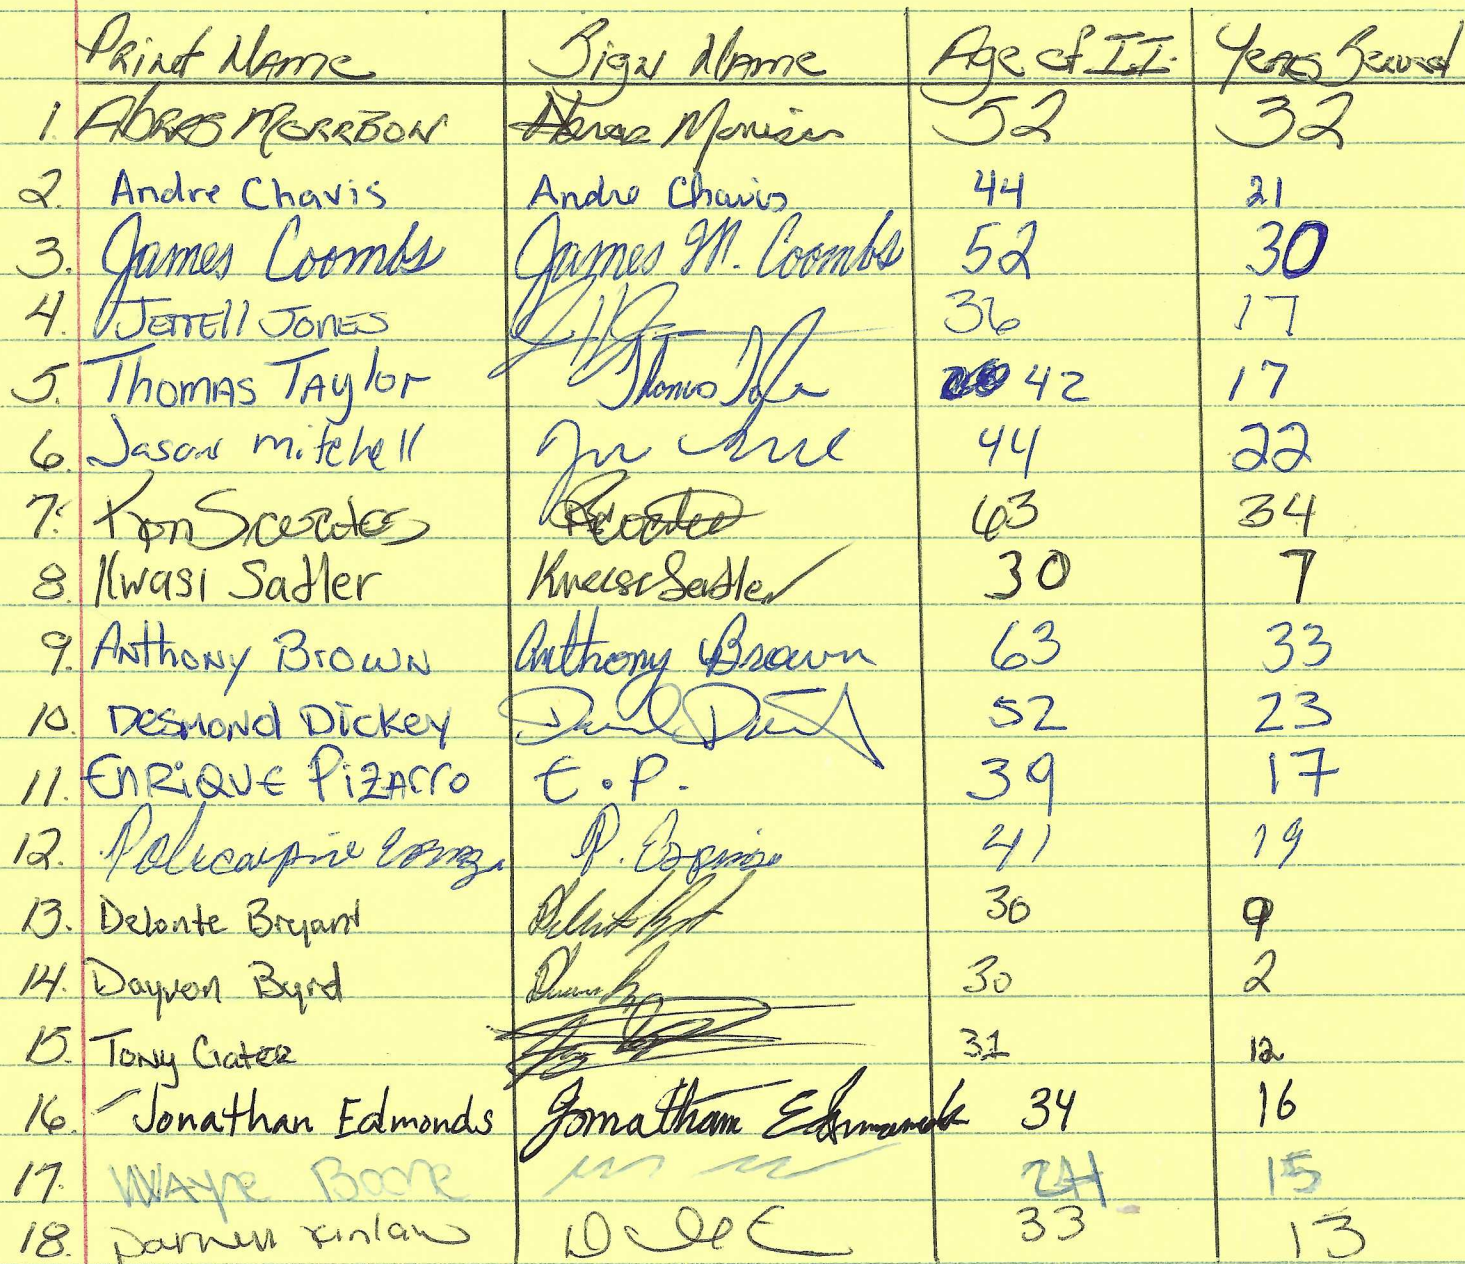 Print Name Sign Name Age of I.I. Years Served
1. Abras Morrison Abras Morrison 52 32
2. Andre Chavis Andre Chavis 44 21
3. James Coombs James M. Coombs 52 30
4. Jerrell Jones 36 17
5. Thomas Taylor Thomas 42 17
6. Jason Mitchell 44 22
7. 63 34
8. Kwasi Sadler Kwasi Sadler 30 7
9. Anthony Brown Anthony Brown 63 33
10. Desmond Dickey 52 23
11. Enrique Pizarro E.P. 39 17
12. P. Espinoza 41 19
13. Delonte Bryant 30 9
14. Dayvon Byrd 30 2
15. Tony 31 12
16. Jonathan Edmonds Jonathan Edmonds 34 16
17. Wayne Boone 15
18. Darnell Kinlaw 33 13